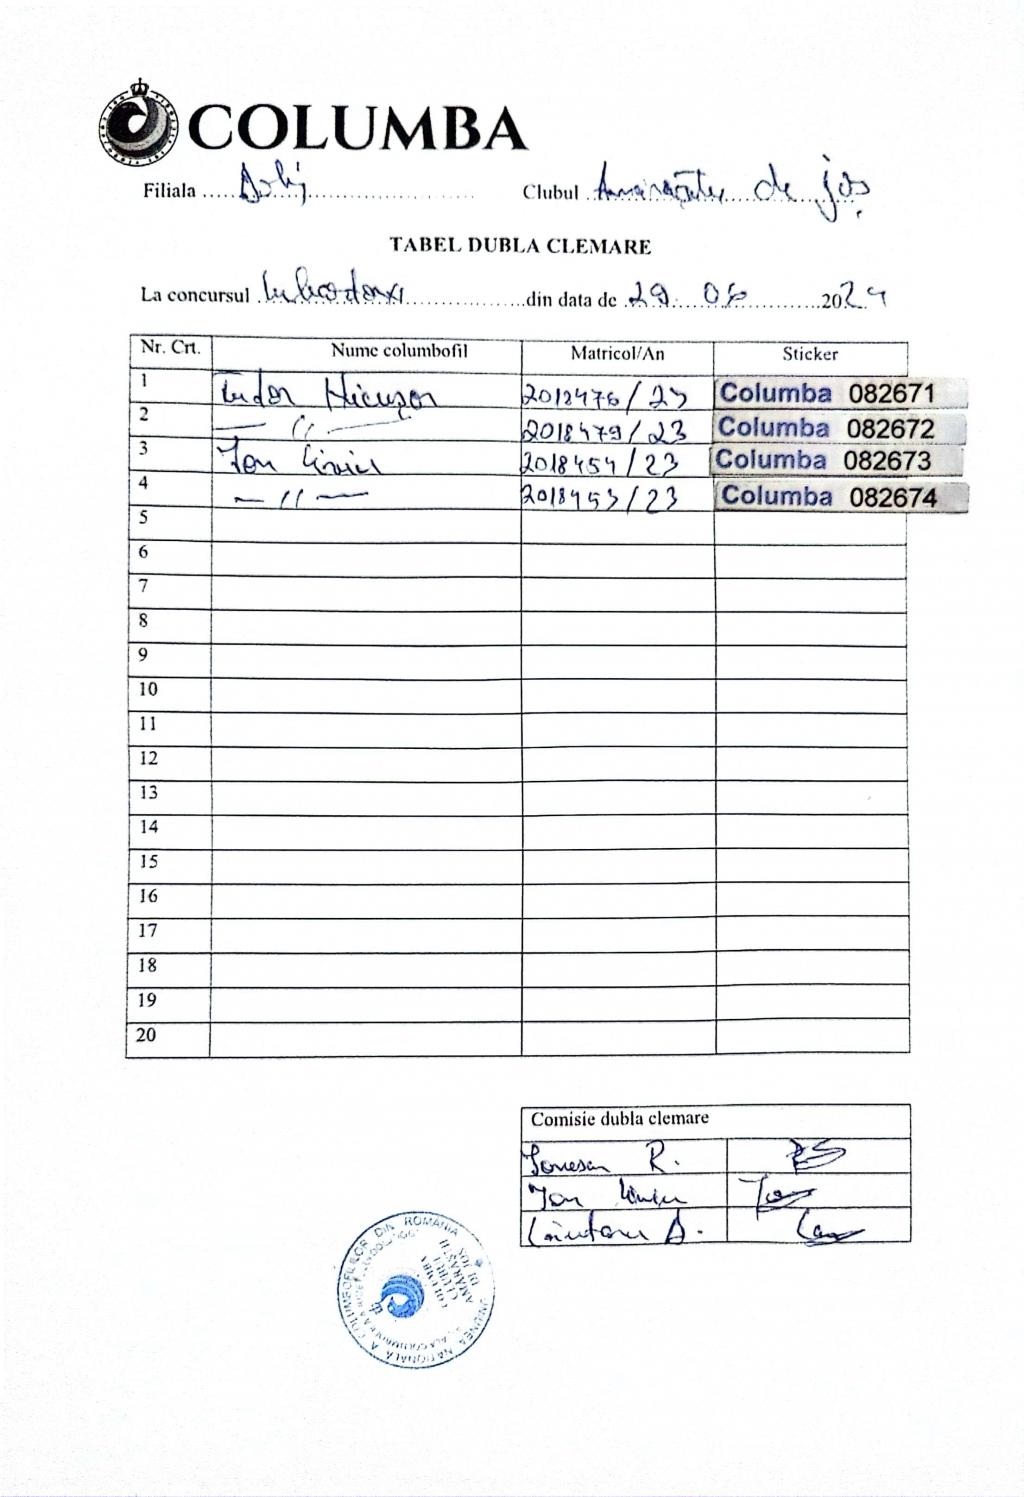 COLUMBA
Filiala Dolj Clubul Amărăștii de jos
TABEL DUBLA CLEMARE
La concursul din data de 29. 06 2024
Nr. Crt. Nume columbofil Matricol/An Sticker
1 Tudor Nicușor 2018476/23 Columba 082671
2 — // — 2018479/23 Columba 082672
3 Ion Liviu 2018454/23 Columba 082673
4 — // — 2018453/23 Columba 082674
5
6
7
8
9
10
11
12
13
14
15
16
17
18
19
20
Comisie dubla clemare
Ionescu R.
Ion Liviu
Căutanu D.
UNIUNEA NAȚIONALĂ A COLUMBOFILILOR DIN ROMANIA
COLUMBA
CLUBUL
AMARASTII
DE JOS